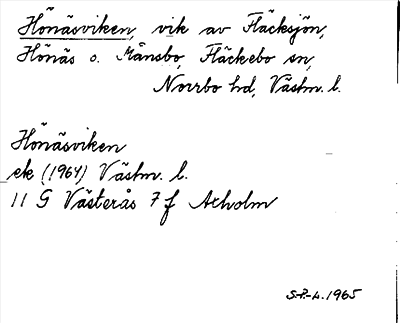 Hönäsviken, vik av Fläcksjön,
Hönäs o. Månsbo, Fläckebo sn,
Norrbo hd, Västm. l.
Hönäsviken
ek (1964) Västm. l.
11 G Västerås 7 f Arholm
S.P.-L. 1965